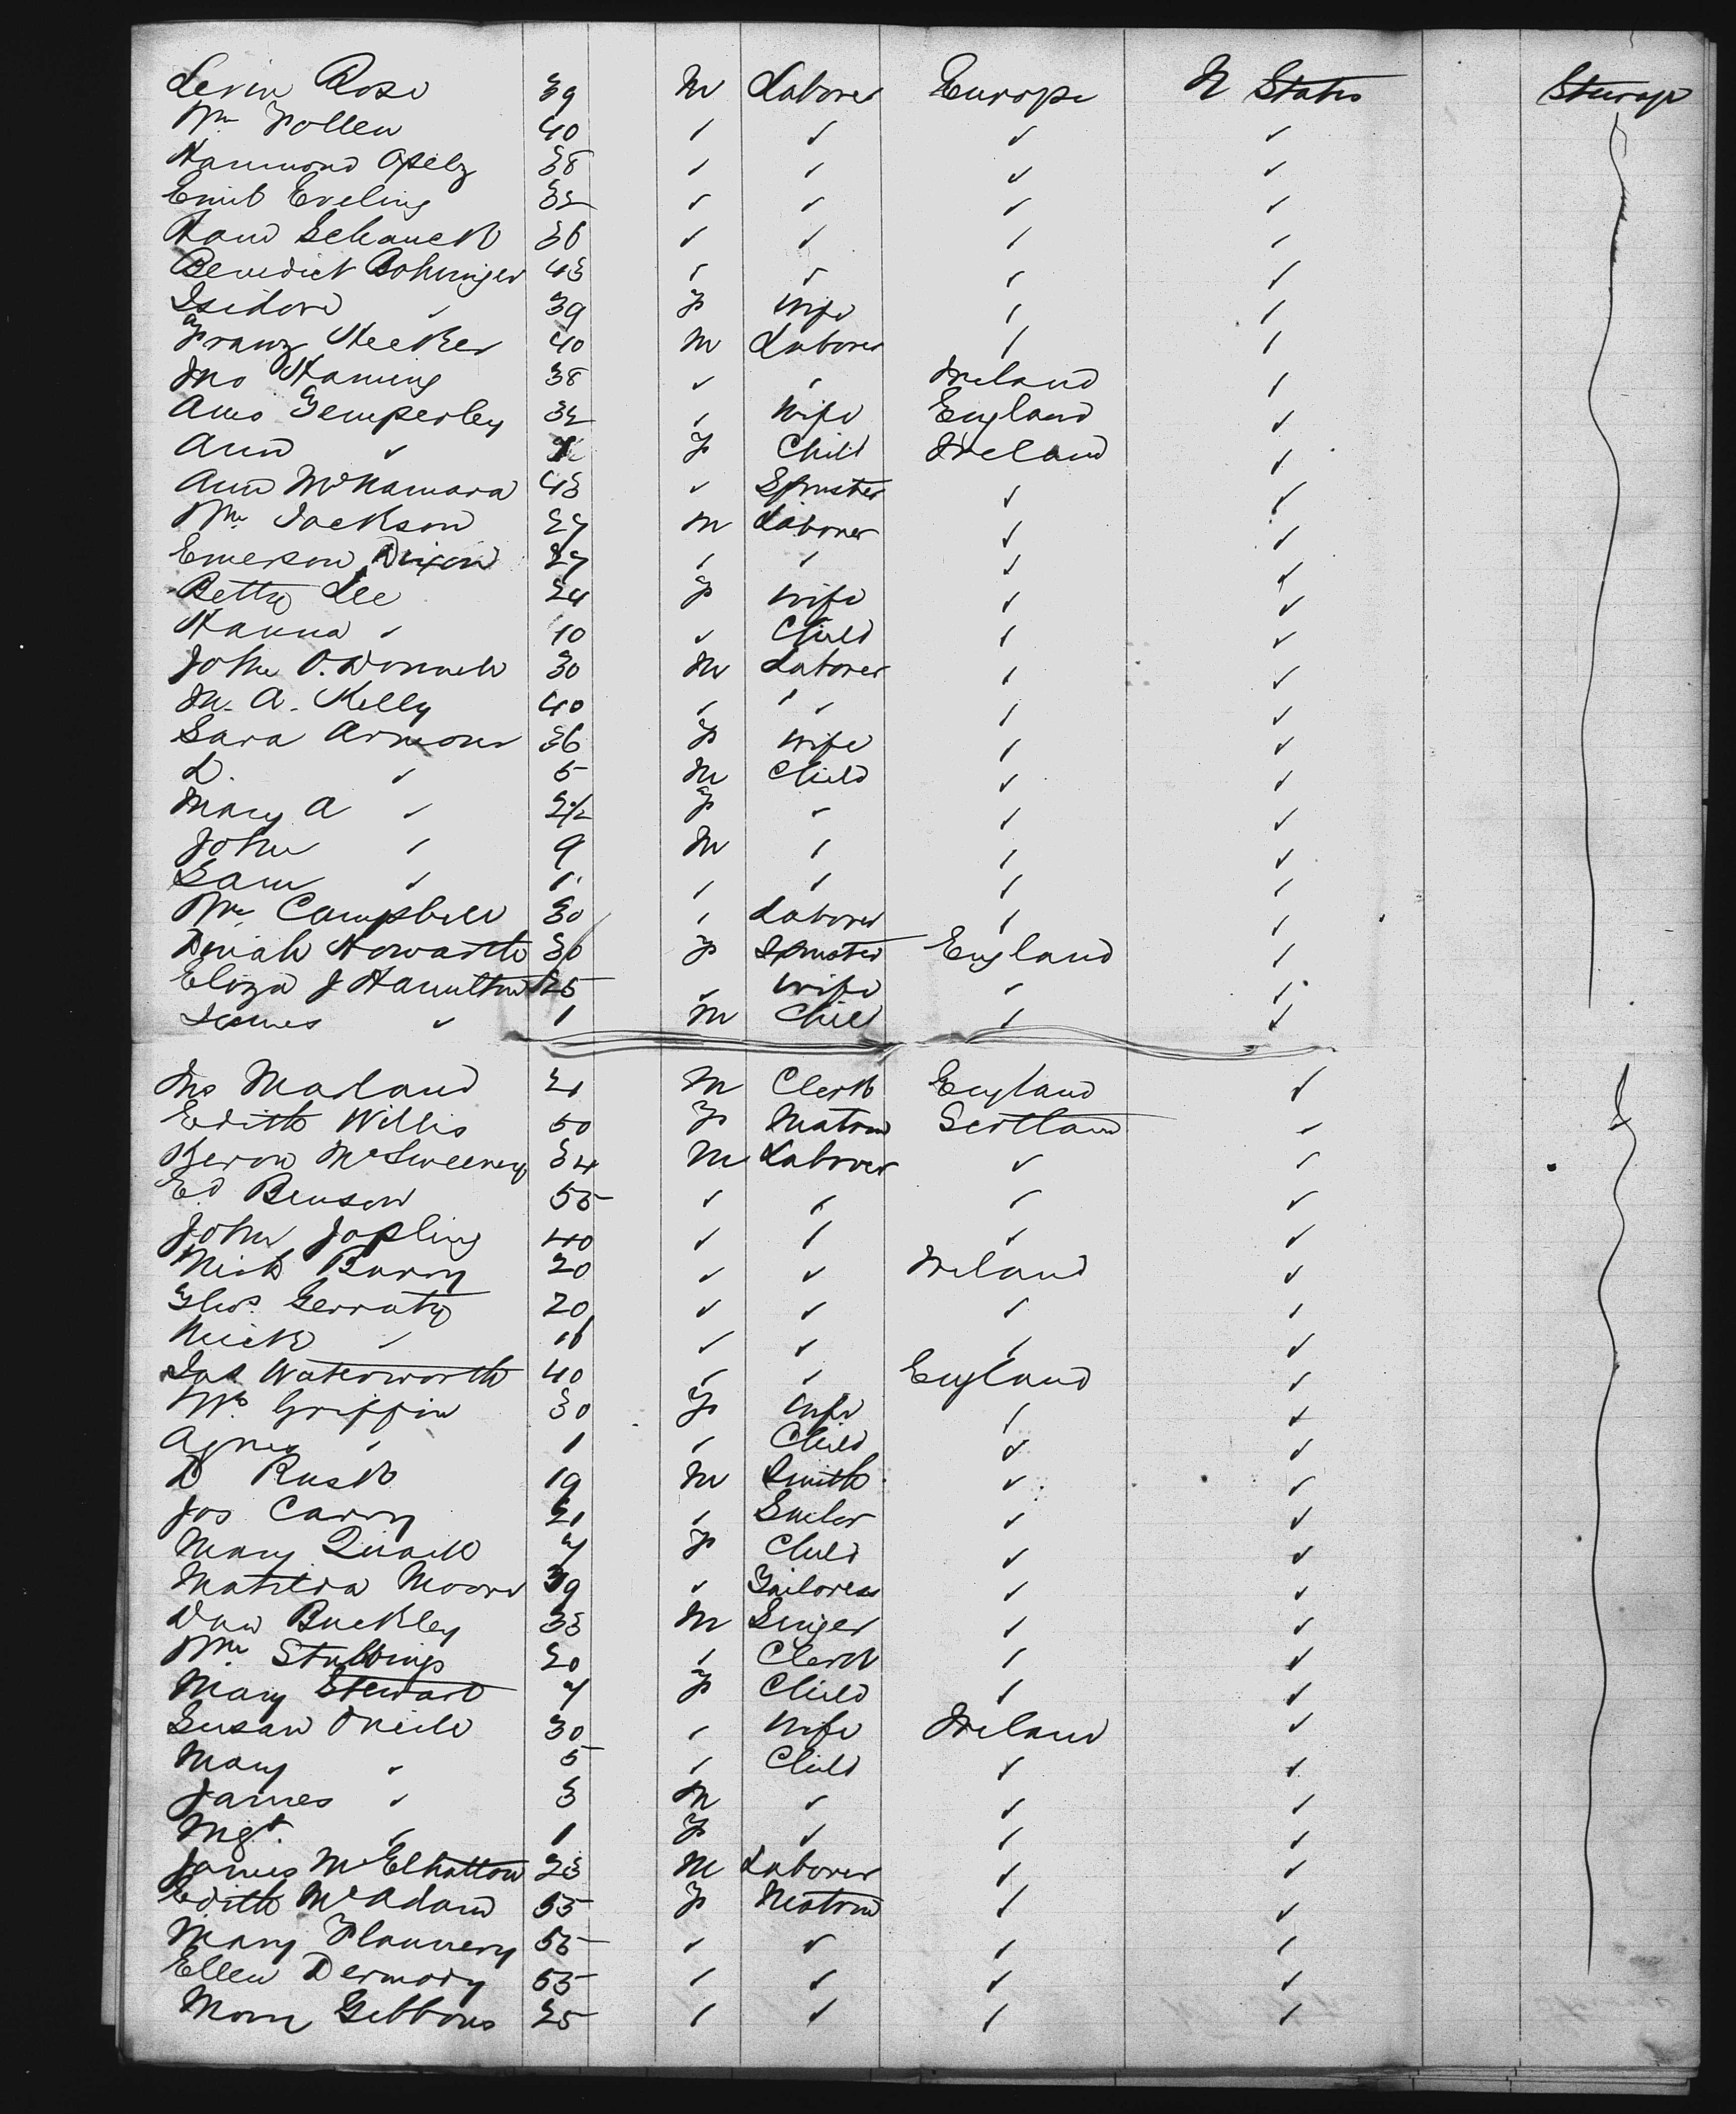 Levin Rose 39 M Laborer Europe U States Steerage
Wm Follen 40 " " " "
Hammond Opelz 38 " " " "
Emil Eveling 32 " " " "
Hans Schauck 36 " " " "
Benedict Bohringer 43 " " " "
Isidore " 39 F Wife " "
Franz Hecker 40 M Laborer " "
Jno Haming 38 " " Ireland "
Ams Temperley 32 " Wife England "
Ann " F Child Ireland "
Ann McNamara 43 " Spinster " "
Wm Jackson 27 M Laborer " "
Emerson Dixon 27 " " " "
Betty Lee 24 F Wife " "
Hanna " 10 " Child " "
John O.Donnell 30 M Laborer " "
M. A. Kelly 40 " " " "
Sara Armour 36 F Wife " "
D. " 5 M Child " "
Mary A " 2½ F " " "
John " 9 M " " "
Sam " 1 " " " "
Wm Campbell 30 " Laborer " "
Dinah Howarth 30 F Spinster England "
Eliza J Hamilton 25 " Wife " "
James " 1 M Child " "
Jno Marland 21 M Clerk England "
Edith Willis 50 F Matron Scotland "
Beron McSweeney 34 M Laborer " "
Ed Benson 55 " " " "
John Jopling 40 " " " "
Nick Barry 20 " " Ireland "
Thos. Gerraty 20 " " " "
Mick " 16 " " " "
Jas Waterworth 40 " " England "
Mrs Griffin 30 F Wife " "
Agnes " 1 " Child " "
D Rusk 19 M Smith " "
Jos Carry 21 " Sailor " "
Mary Quack 7 F Child " "
Matilda Moore 39 " Tailoress " "
Dan Buckley 33 M Singer " "
Wm Stubbings 20 " Clerk " "
Mary Stewart 7 F Child " "
Susan Oneill 30 " Wife Ireland "
Mary " 5 " Child " "
James " 3 M " " "
Mgt. " 1 F " " "
James McElhatton 23 M Laborer " "
Edith McAdam 55 F Matron " "
Mary Flannery 55 " " " "
Ellen Dermody 55 " " " "
Mom Gibbons 25 " " " "